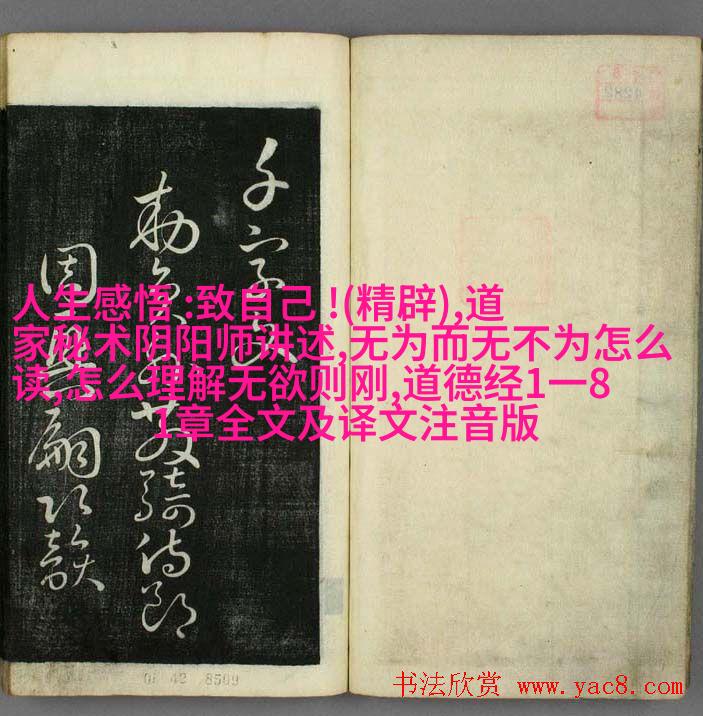 千字文
勅員外散騎侍郎
周興嗣次韻
人生感悟 :致自己 !(精辟),道
家秘术阴阳师讲述,无为而无不为怎么
读,怎么理解无欲则刚,道德经1一8
1章全文及译文注音版
42 8509
书法欣赏 www.yac8.com